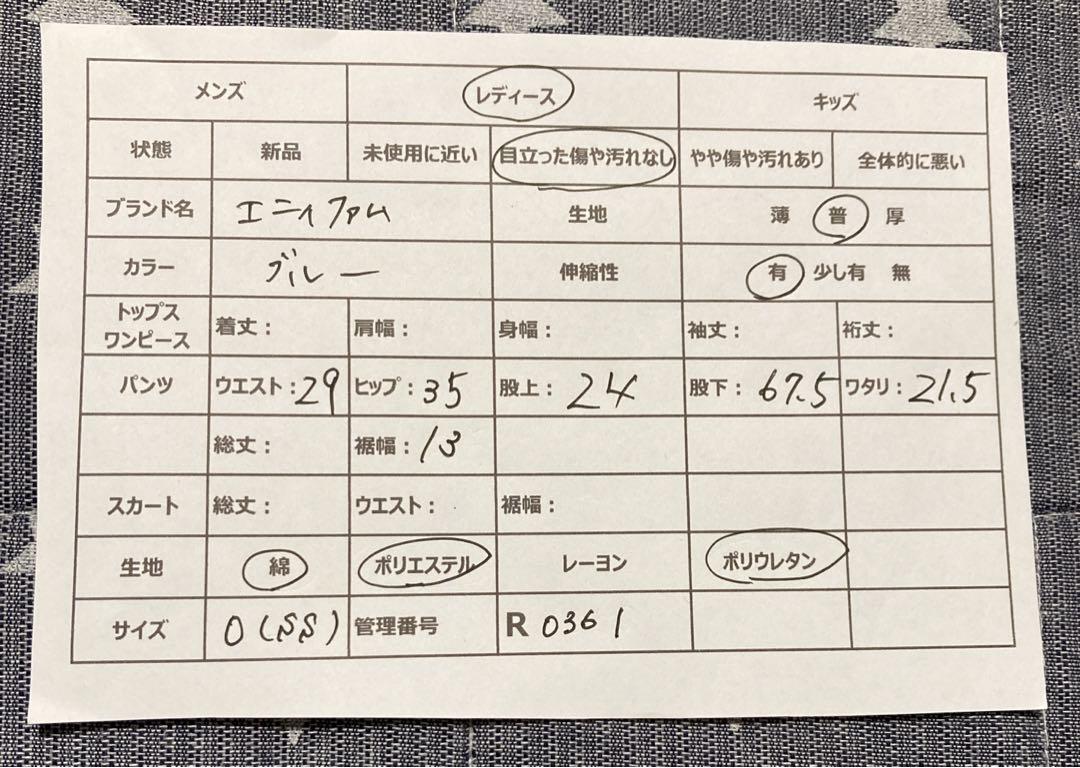 メンズ レディース キッズ
状態 新品 未使用に近い 目立った傷や汚れなし やや傷や汚れあり 全体的に悪い
ブランド名 エニィファム 生地 薄 普 厚
カラー ブルー 伸縮性 有 少し有 無
トップス
ワンピース 着丈: 肩幅: 身幅: 袖丈: 裄丈:
パンツ ウエスト:29 ヒップ:35 股上:24 股下:67.5 ワタリ:21.5
総丈: 裾幅:13
スカート 総丈: ウエスト: 裾幅:
生地 綿 ポリエステル レーヨン ポリウレタン
サイズ 0(SS) 管理番号 R 0361